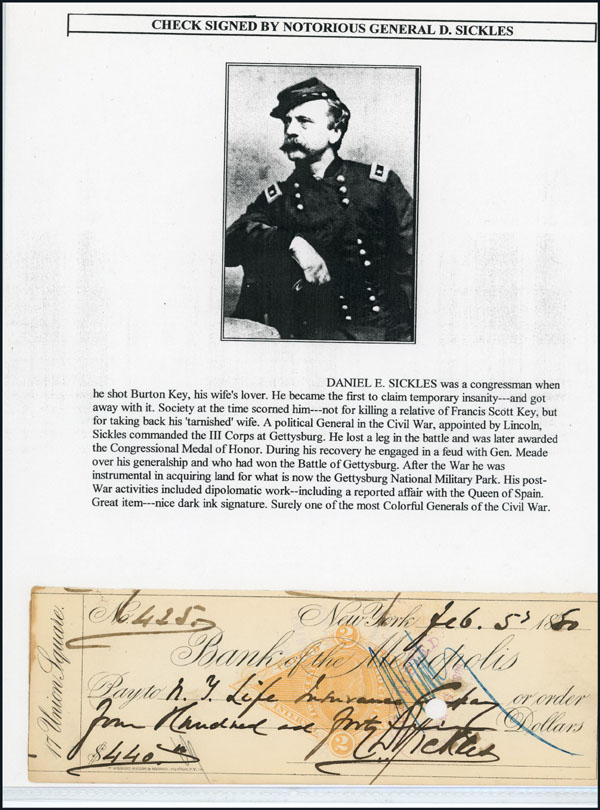 CHECK SIGNED BY NOTORIOUS GENERAL D. SICKLES
DANIEL E. SICKLES was a congressman when
he shot Burton Key, his wife's lover. He became the first to claim temporary insanity---and got
away with it. Society at the time scorned him---not for killing a relative of Francis Scott Key, but
for taking back his 'tarnished' wife. A political General in the Civil War, appointed by Lincoln,
Sickles commanded the III Corps at Gettysburg. He lost a leg in the battle and was later awarded
the Congressional Medal of Honor. During his recovery he engaged in a feud with Gen. Meade
over his generalship and who had won the Battle of Gettysburg. After the War he was
instrumental in acquiring land for what is now the Gettysburg National Military Park. His post-
War activities included dipolomatic work--including a reported affair with the Queen of Spain.
Great item---nice dark ink signature. Surely one of the most Colorful Generals of the Civil War.
17 Union Square.
No 425
New York Feb. 5 1880
Bank of the Metropolis
2
Pay to N. Y. Life Insurance Compay or order
Four Hundred and forty Dollars
$440
2
D Sickles